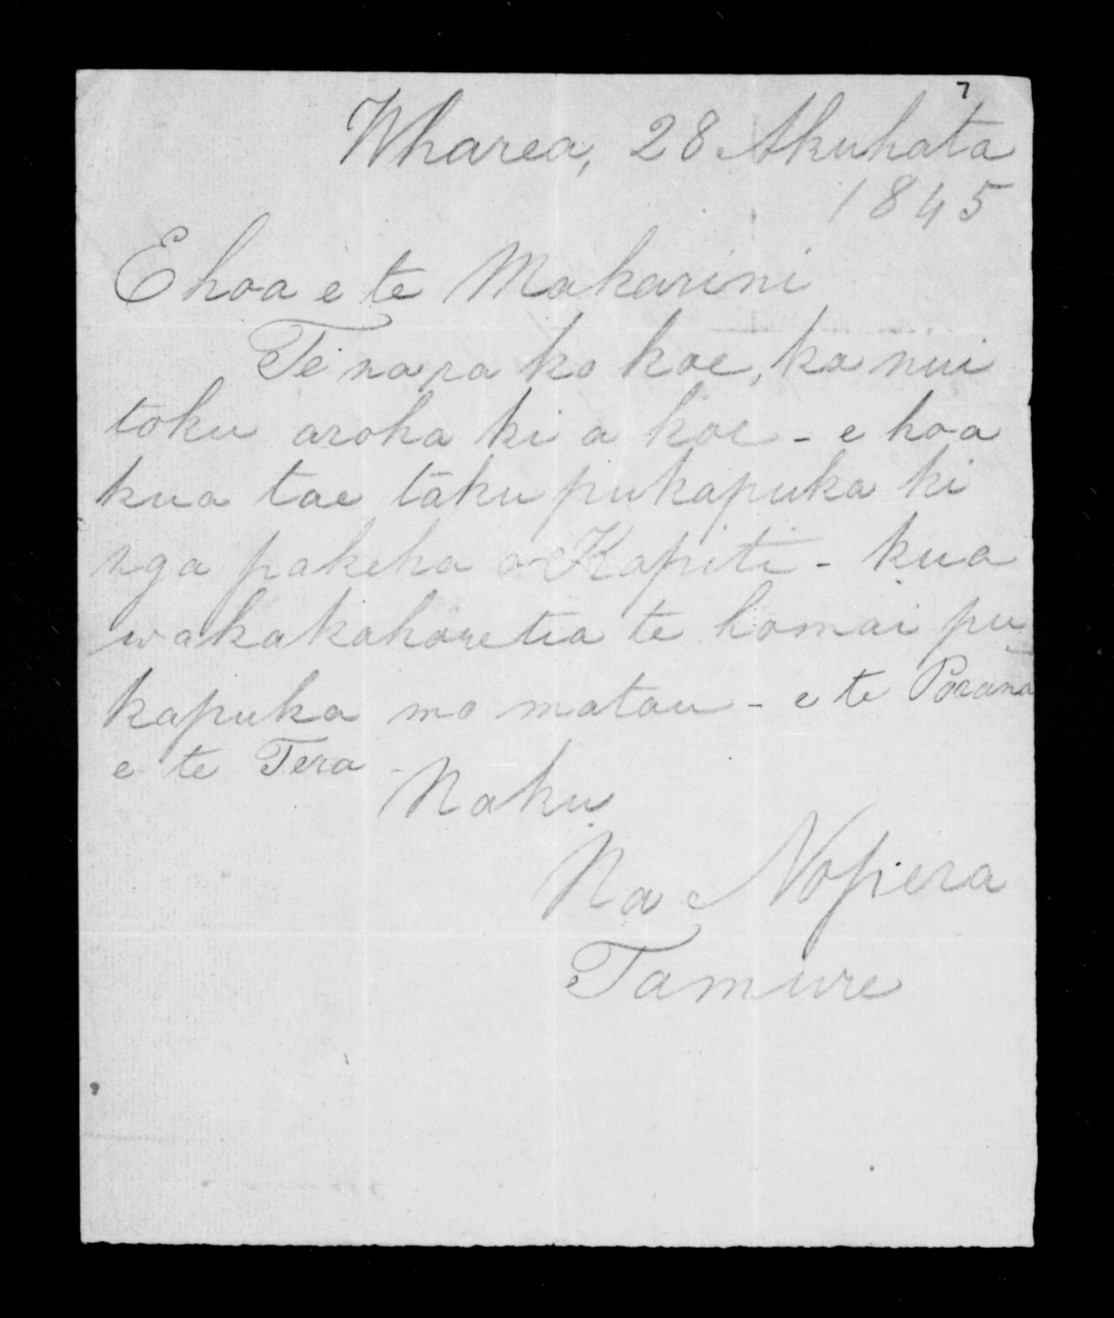 7
Wharea, 28 Akuhata
1845
E hoa e te Makarini
Te na ra ko koe, ka nui
toku aroha ki a koe - e hoa
kua tae tāku pukapuka ki
nga pakeha o Kapiti - kua
wakakahoretia te homai pu
kapuka mo matau - e te Porana
e te Tera -
Naku
Na Nopera
Tamure